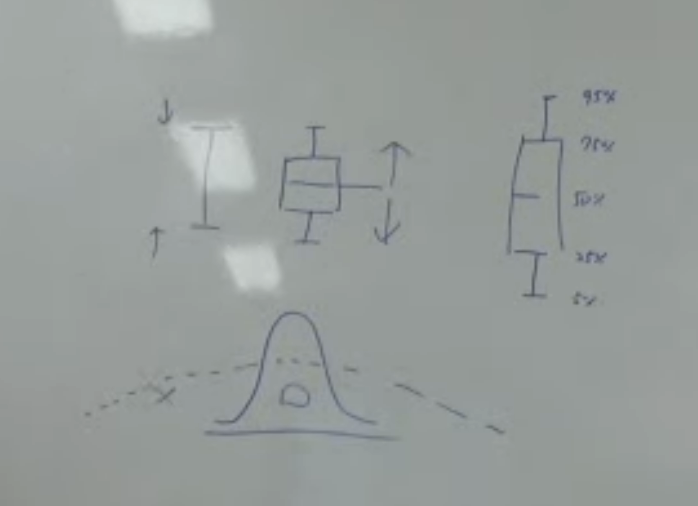 95%
75%
50%
25%
5%